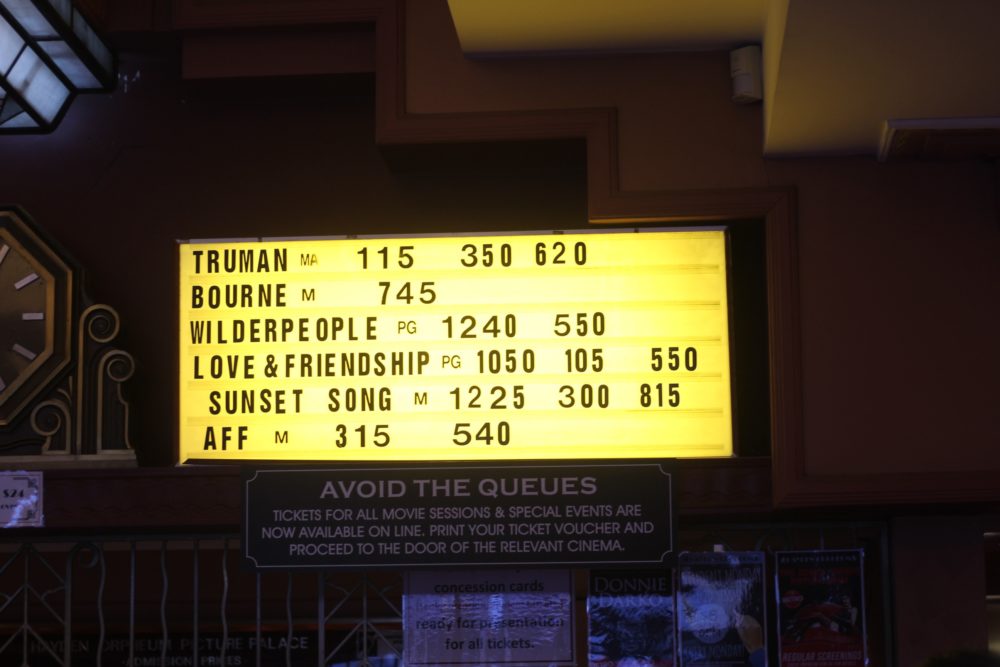 TRUMAN MA 115 350 620
BOURNE M 745
WILDERPEOPLE PG 1240 550
LOVE & FRIENDSHIP PG 1050 105 550
SUNSET SONG M 1225 300 815
AFF M 315 540
AVOID THE QUEUES
TICKETS FOR ALL MOVIE SESSIONS & SPECIAL EVENTS ARE
NOW AVAILABLE ON LINE. PRINT YOUR TICKET VOUCHER AND
PROCEED TO THE DOOR OF THE RELEVANT CINEMA.
$24
concession cards
ready for presentation
for all tickets.
DONNIE
DARKO
HAYDEN ORPHEUM PICTURE PALACE
ADMISSION PRICES
REGULAR SCREENINGS